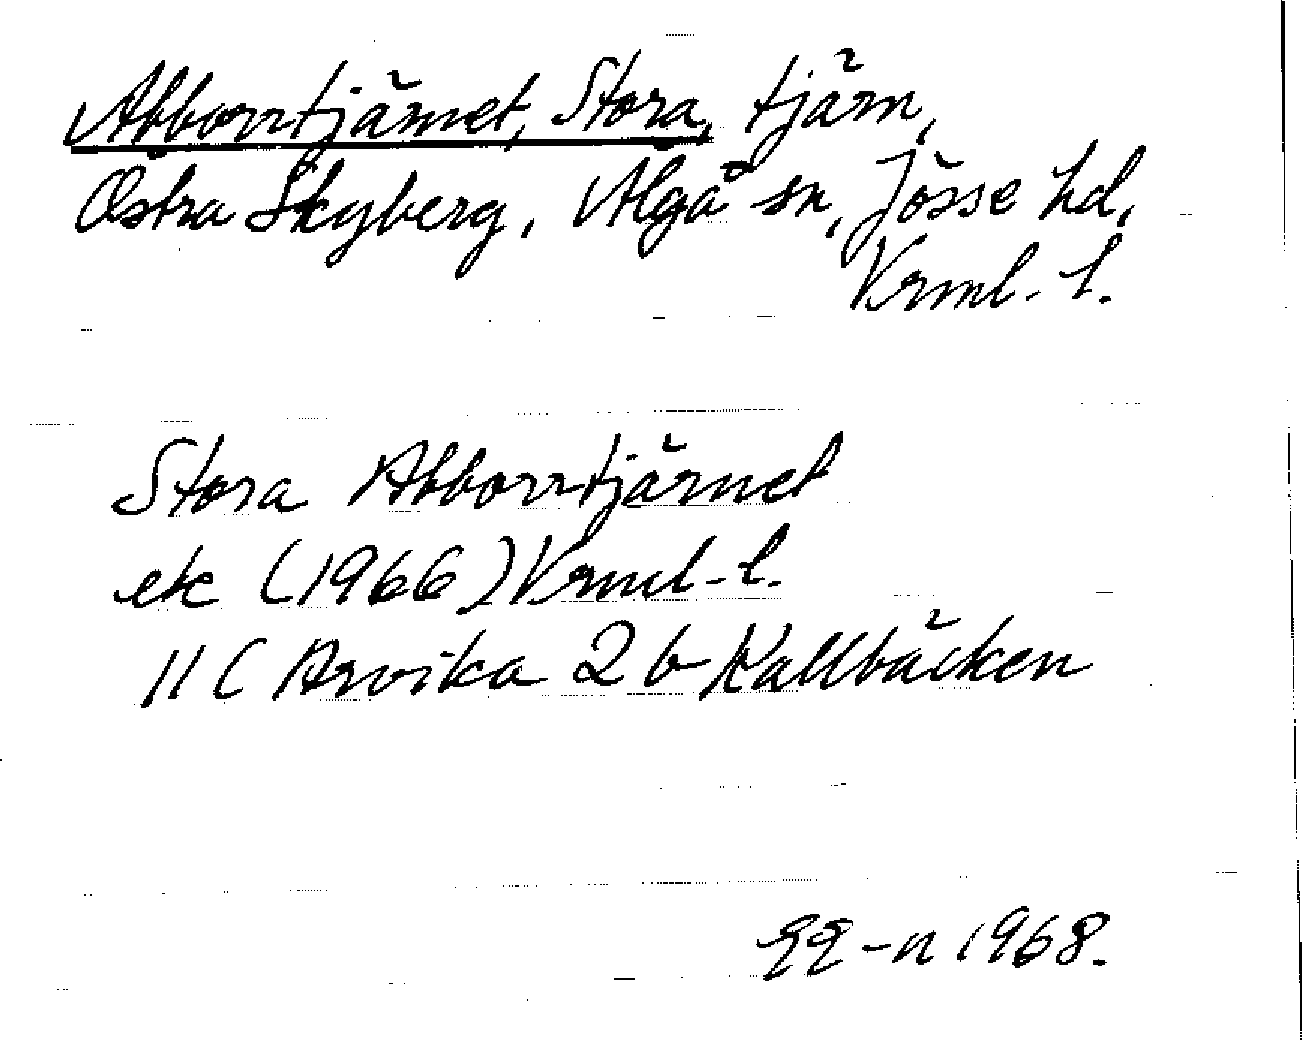 Abborrtjärnet, Stora, tjärn,
Östra Skyberg, Älgå sn, Jösse hd,
Vrml. l.
Stora Abborrtjärnet
ek (1966) Vrml. l.
11 C Arvika 2 b Kallbäcken
-n 1968.